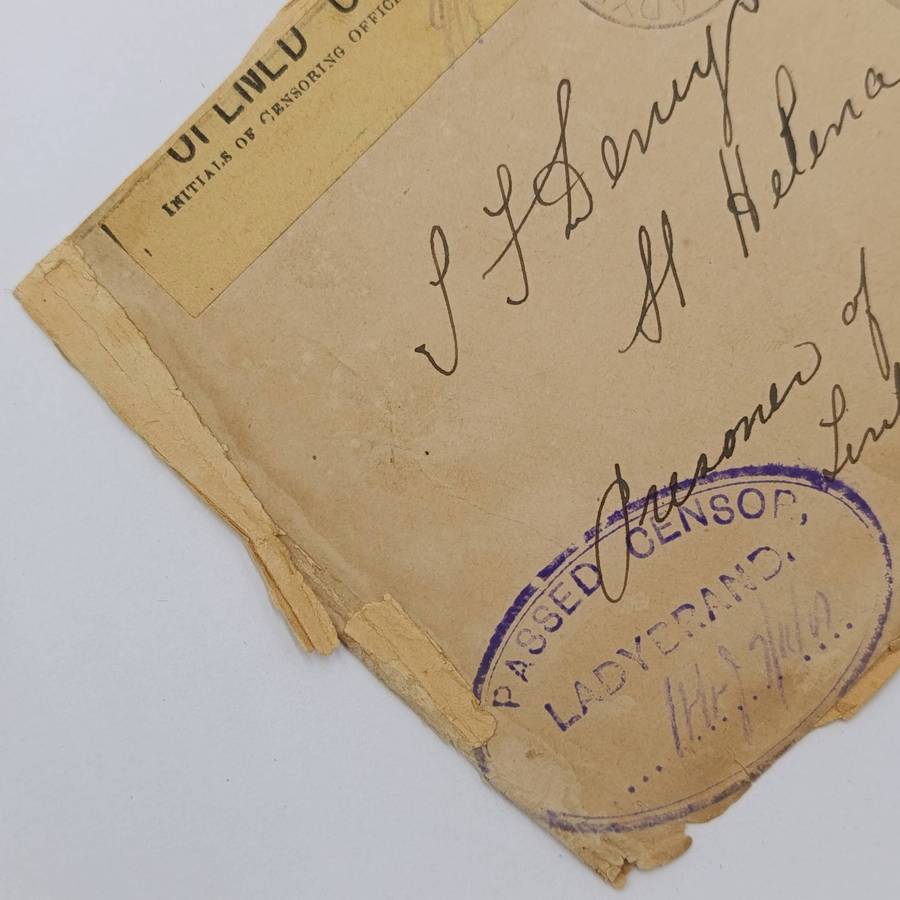 OPENED
INITIALS OF CENSORING OFFIC
S F Senny
St Helena
Prisoner of
PASSED CENSOR,
LADYBRAND.